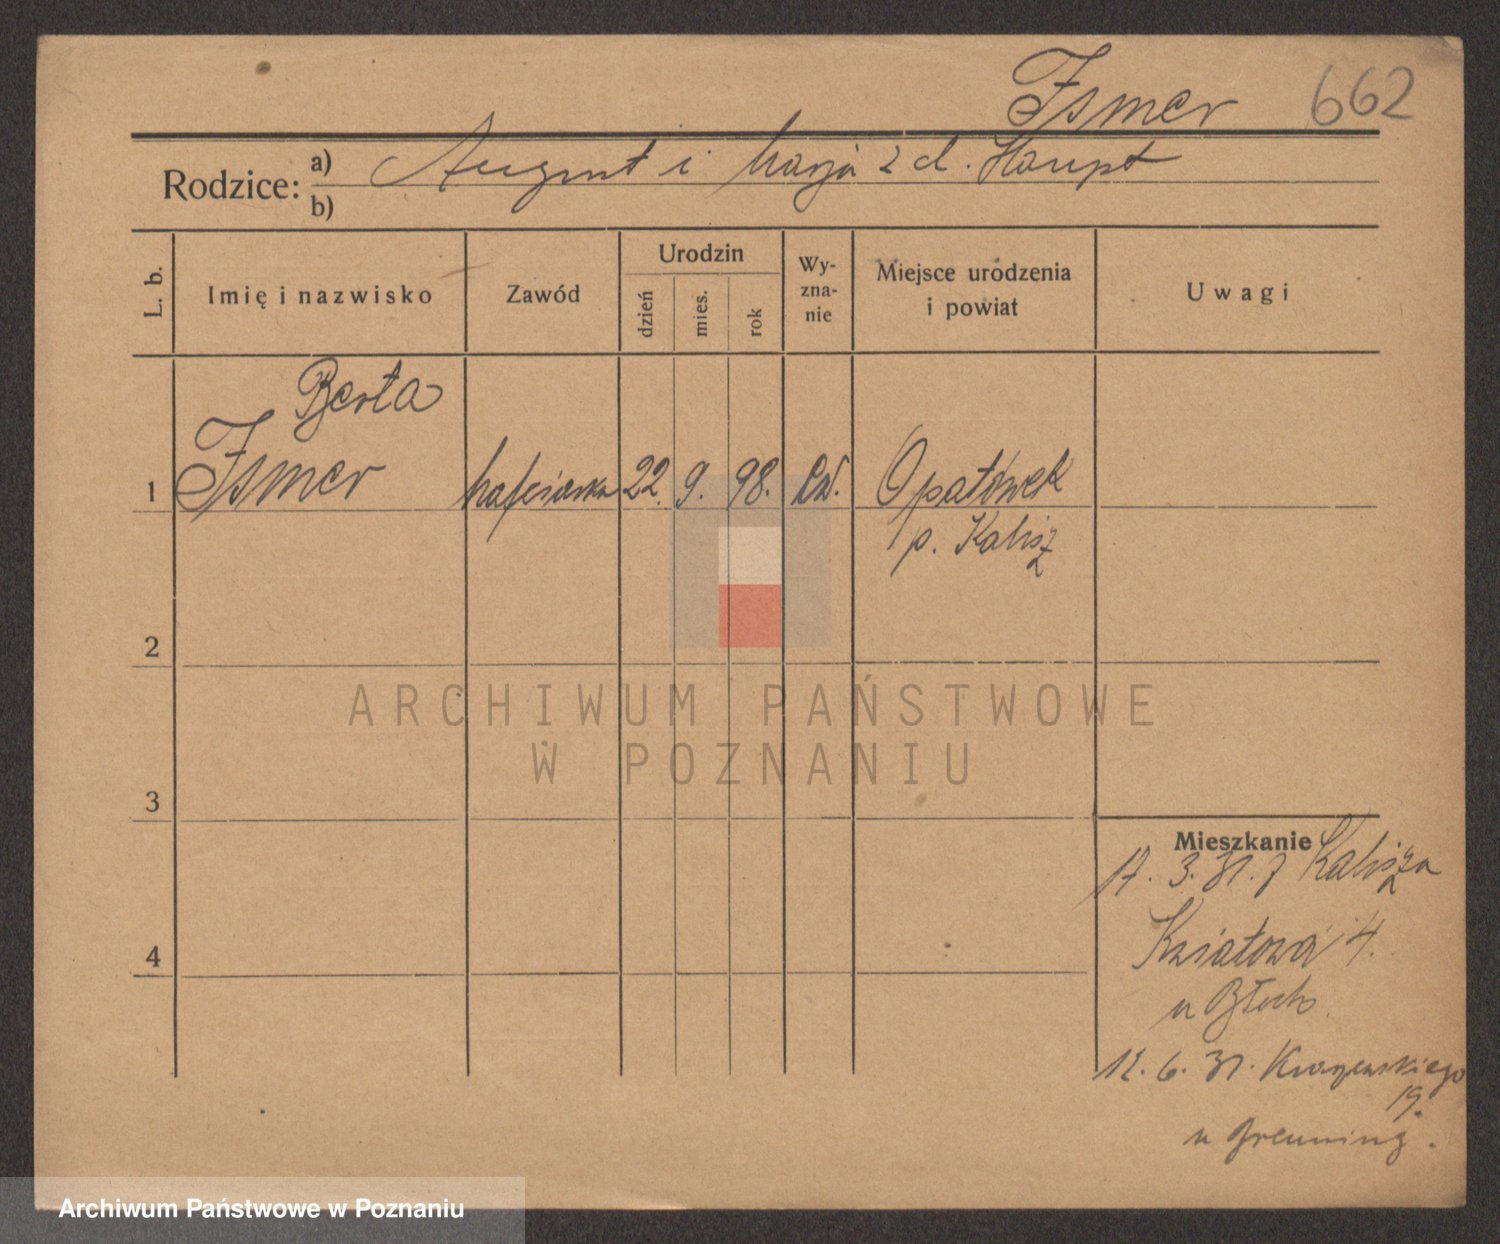 Ismer 662
Rodzice: a) August i Marja z d. Haupt
b)
L. b. Imię i nazwisko Zawód Urodzin dzień mies. rok Wy-zna-nie Miejsce urodzenia i powiat Uwagi
Berta
1 Ismer hafciarka 22. 9. 98. Ew. Opatówek
p. Kalisz
2
ARCHIWUM PAŃSTWOWE
W POZNANIU
3
Mieszkanie
17. 3. 31. z Kalisza
Kwiatowa 4.
u Błoch.
12. 6. 31. Kraszewskiego
19.
u Greuning.
4
Archiwum Państwowe w Poznaniu